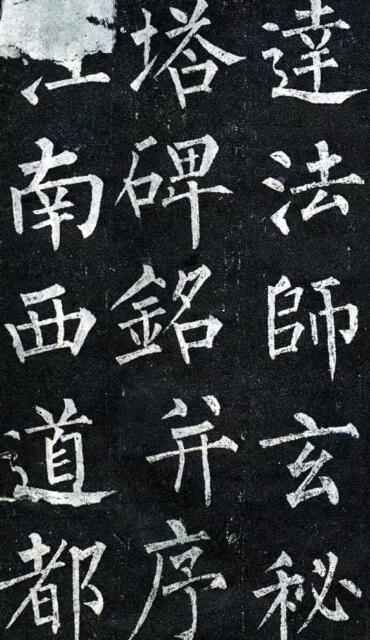 達法師玄秘
塔碑銘并序
江南西道都